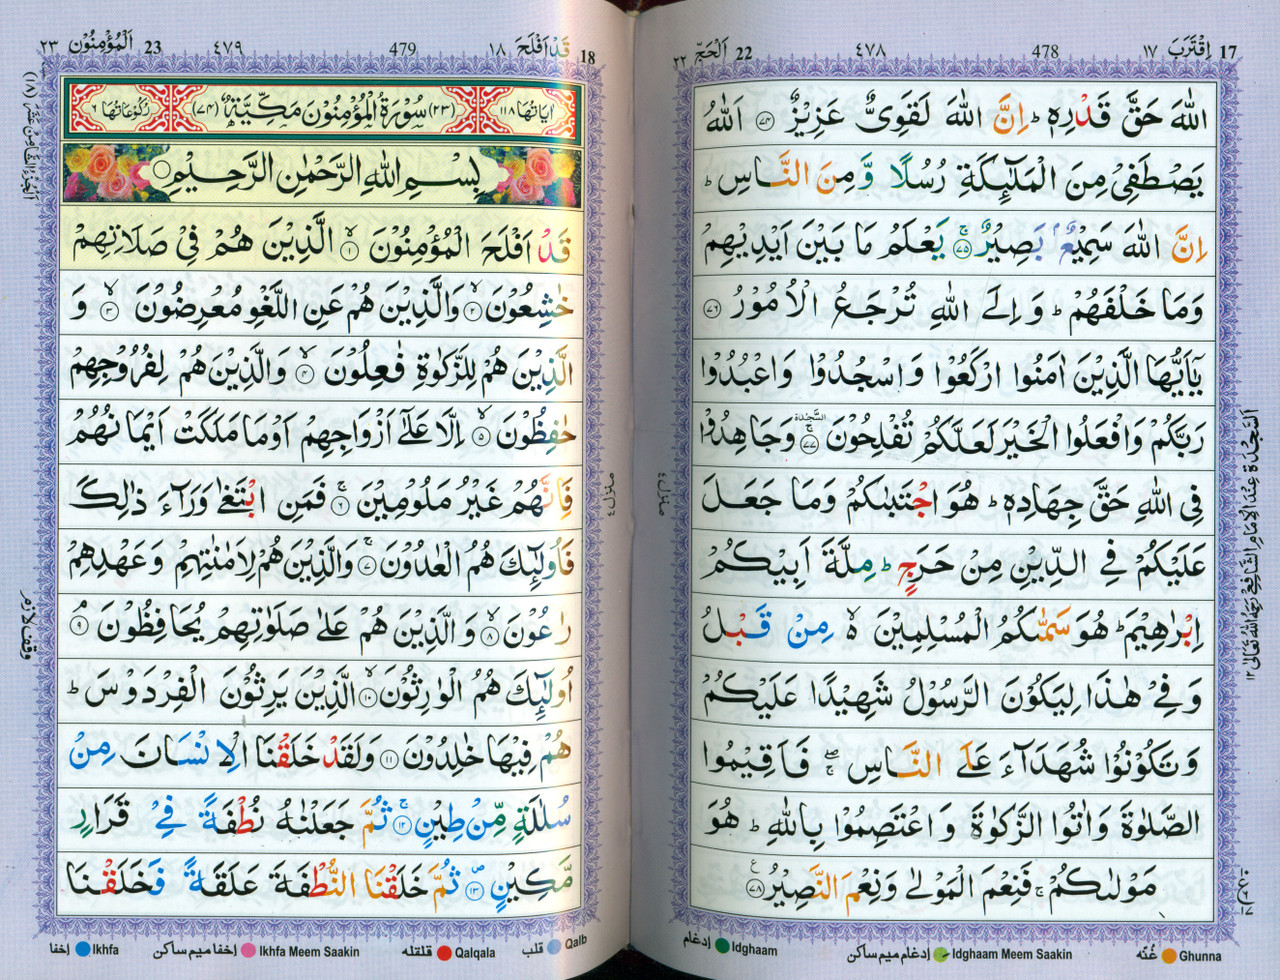 اِقْتَرَبَ ١٧ 17
478
٤٧٨
اَلْحَجّ ٢٢ 22
اللّٰهَ حَقَّ قَدْرِهٖ ؕ اِنَّ اللّٰهَ لَقَوِیٌّ عَزِیْزٌ ﴿۷۴﴾ اَللّٰهُ
یَصْطَفِیْ مِنَ الْمَلٰٓىِٕكَةِ رُسُلًا وَّ مِنَ النَّاسِ ؕ
اِنَّ اللّٰهَ سَمِیْعٌۢ بَصِیْرٌ ﴿۷۵﴾ۚ یَعْلَمُ مَا بَیْنَ اَیْدِیْهِمْ
وَمَا خَلْفَهُمْ ؕ وَ اِلَی اللّٰهِ تُرْجَعُ الْاُمُوْرُ ﴿۷۶﴾
یٰۤاَیُّهَا الَّذِیْنَ اٰمَنُوا ارْكَعُوْا وَ اسْجُدُوْا وَ اعْبُدُوْا
رَبَّكُمْ وَ افْعَلُوا الْخَیْرَ لَعَلَّكُمْ تُفْلِحُوْنَ ﴿۷۷﴾ۚ السَّجْدَة وَ جَاهِدُوْا
فِی اللّٰهِ حَقَّ جِهَادِهٖ ؕ هُوَ اجْتَبٰىكُمْ وَمَا جَعَلَ
عَلَیْكُمْ فِی الدِّیْنِ مِنْ حَرَجٍ ؕ مِلَّةَ اَبِیْكُمْ
اِبْرٰهِیْمَ ؕ هُوَ سَمّٰىكُمُ الْمُسْلِمِیْنَ ۙ۬ مِنْ قَبْلُ
وَ فِیْ هٰذَا لِیَكُوْنَ الرَّسُوْلُ شَهِیْدًا عَلَیْكُمْ
وَ تَكُوْنُوْا شُهَدَآءَ عَلَی النَّاسِ ۖۚ فَاَقِیْمُوا
الصَّلٰوةَ وَ اٰتُوا الزَّكٰوةَ وَ اعْتَصِمُوْا بِاللّٰهِ ؕ هُوَ
مَوْلٰىكُمْ ۚ فَنِعْمَ الْمَوْلٰی وَ نِعْمَ النَّصِیْرُ ﴿۷۸﴾
اَلسَّجْدَةُ عِنْدَ الْاِمَامِ الشَّافِعِیِّ رَحِمَهُ اللّٰهُ تَعَالٰی ١٢
منزل ٤
غُنَّه Ghunna
إدغام ميم ساكن Idghaam Meem Saakin
إدغام Idghaam
18 قَدْ اَفْلَحَ ١٨
479
٤٧٩
23 اَلْمُؤْمِنُوْن ٢٣
اَلْجُزْءُ الثَّامِنُ عَشَرَ (١٨)
اٰيَاتُهَا ١١٨
(٢٣) سُوْرَةُ الْمُؤْمِنُوْنَ مَكِّيَّةٌ (٧٤)
رُكُوْعَاتُهَا ٦
بِسْمِ اللّٰهِ الرَّحْمٰنِ الرَّحِیْمِ
قَدْ اَفْلَحَ الْمُؤْمِنُوْنَ ﴿۱﴾ۙ الَّذِیْنَ هُمْ فِیْ صَلَاتِهِمْ
خٰشِعُوْنَ ﴿۲﴾ۙ وَالَّذِیْنَ هُمْ عَنِ اللَّغْوِ مُعْرِضُوْنَ ﴿۳﴾ۙ وَ
الَّذِیْنَ هُمْ لِلزَّكٰوةِ فٰعِلُوْنَ ﴿۴﴾ۙ وَالَّذِیْنَ هُمْ لِفُرُوْجِهِمْ
حٰفِظُوْنَ ﴿۵﴾ۙ اِلَّا عَلٰۤی اَزْوَاجِهِمْ اَوْ مَا مَلَكَتْ اَیْمَانُهُمْ
فَاِنَّهُمْ غَیْرُ مَلُوْمِیْنَ ﴿۶﴾ۚ فَمَنِ ابْتَغٰی وَرَآءَ ذٰلِكَ
فَاُولٰٓىِٕكَ هُمُ الْعٰدُوْنَ ﴿۷﴾ۚ وَالَّذِیْنَ هُمْ لِاَمٰنٰتِهِمْ وَ عَهْدِهِمْ
رٰعُوْنَ ﴿۸﴾ۙ وَ الَّذِیْنَ هُمْ عَلٰی صَلَوٰتِهِمْ یُحَافِظُوْنَ ﴿۹﴾ۘ
اُولٰٓىِٕكَ هُمُ الْوٰرِثُوْنَ ﴿۱۰﴾ۙ الَّذِیْنَ یَرِثُوْنَ الْفِرْدَوْسَ ؕ
هُمْ فِیْهَا خٰلِدُوْنَ ﴿۱۱﴾ وَلَقَدْ خَلَقْنَا الْاِنْسَانَ مِنْ
سُلٰلَةٍ مِّنْ طِیْنٍ ﴿۱۲﴾ۚ ثُمَّ جَعَلْنٰهُ نُطْفَةً فِیْ قَرَارٍ
مَّكِیْنٍ ﴿۱۳﴾۪ ثُمَّ خَلَقْنَا النُّطْفَةَ عَلَقَةً فَخَلَقْنَا
وقف لازم
منزل ٤
قلب Qalb
قلقله Qalqala
إخفا ميم ساكن Ikhfa Meem Saakin
إخفا Ikhfa